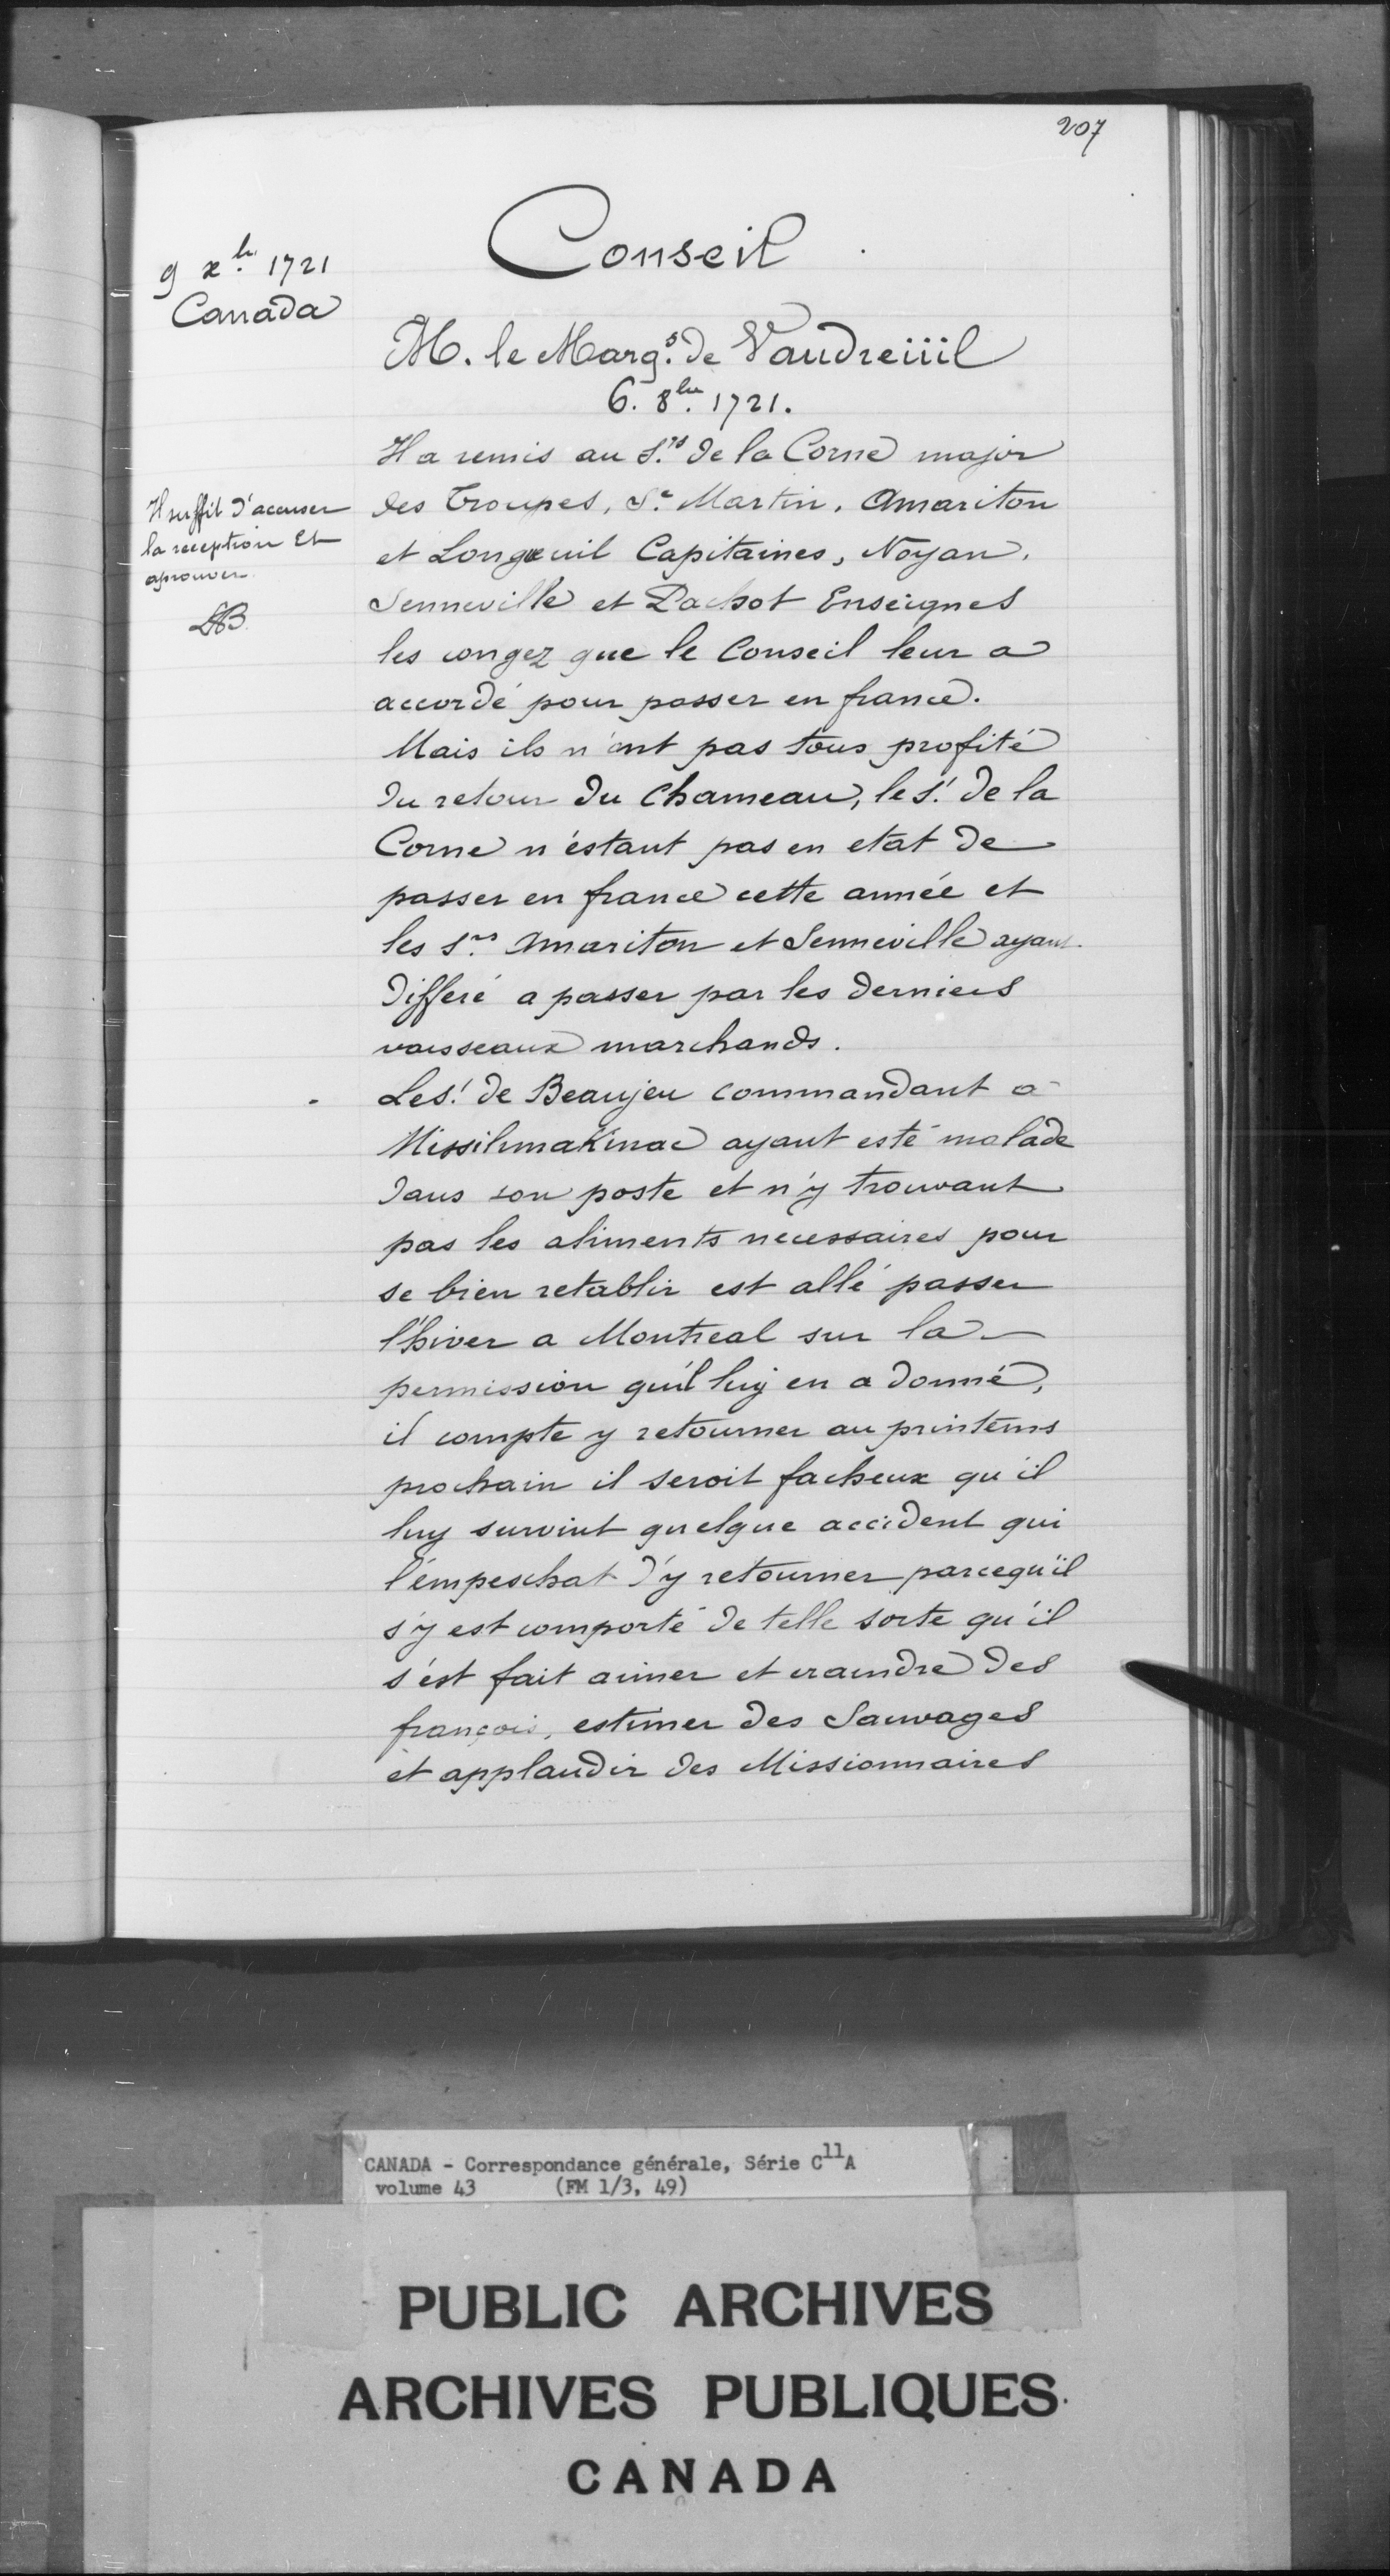 207
9 xbre 1721
Canada
Conseil
M. le Marqs. de Vaudreüil
6. 8bre. 1721.
Il a remis au Srs. de la Corne major
des troupes, St. Martin, Amariton
et Longueuil Capitaines, Noyan,
Senneville et Pachot Enseignes
les congez que le Conseil leur a
accordé pour passer en france.
Mais ils n'ont pas tous profité
du retour du Chameau, le Sr. de la
Corne n'éstant pas en etat de
passer en france cette année et
les Srs. Amariton et Senneville ayant
differé a passer par les derniers
vaisseaux marchands.
Il suffit d'accuser
la reception Et
aprouver.
LAB
Le Sr. de Beaujeu commandant a
Missilimakinac ayant esté malade
dans son poste et n'y trouvant
pas les aliments necessaires pour
se bien retablir est allé passer
l'hiver a Montreal sur la
permission qu'il luy en a donné,
il compte y retourner au printems
prochain il seroit facheux qu'il
luy survint quelque accident qui
l'empeschat d'y retourner parcequ'il
s'y est comporté de telle sorte qu'il
s'est fait aimer et craindre des
françois, estimer des Sauvages
et applaudir des Missionnaires
CANADA - Correspondance générale, Série C11A
volume 43 (FM 1/3, 49)
PUBLIC ARCHIVES
ARCHIVES PUBLIQUES
CANADA